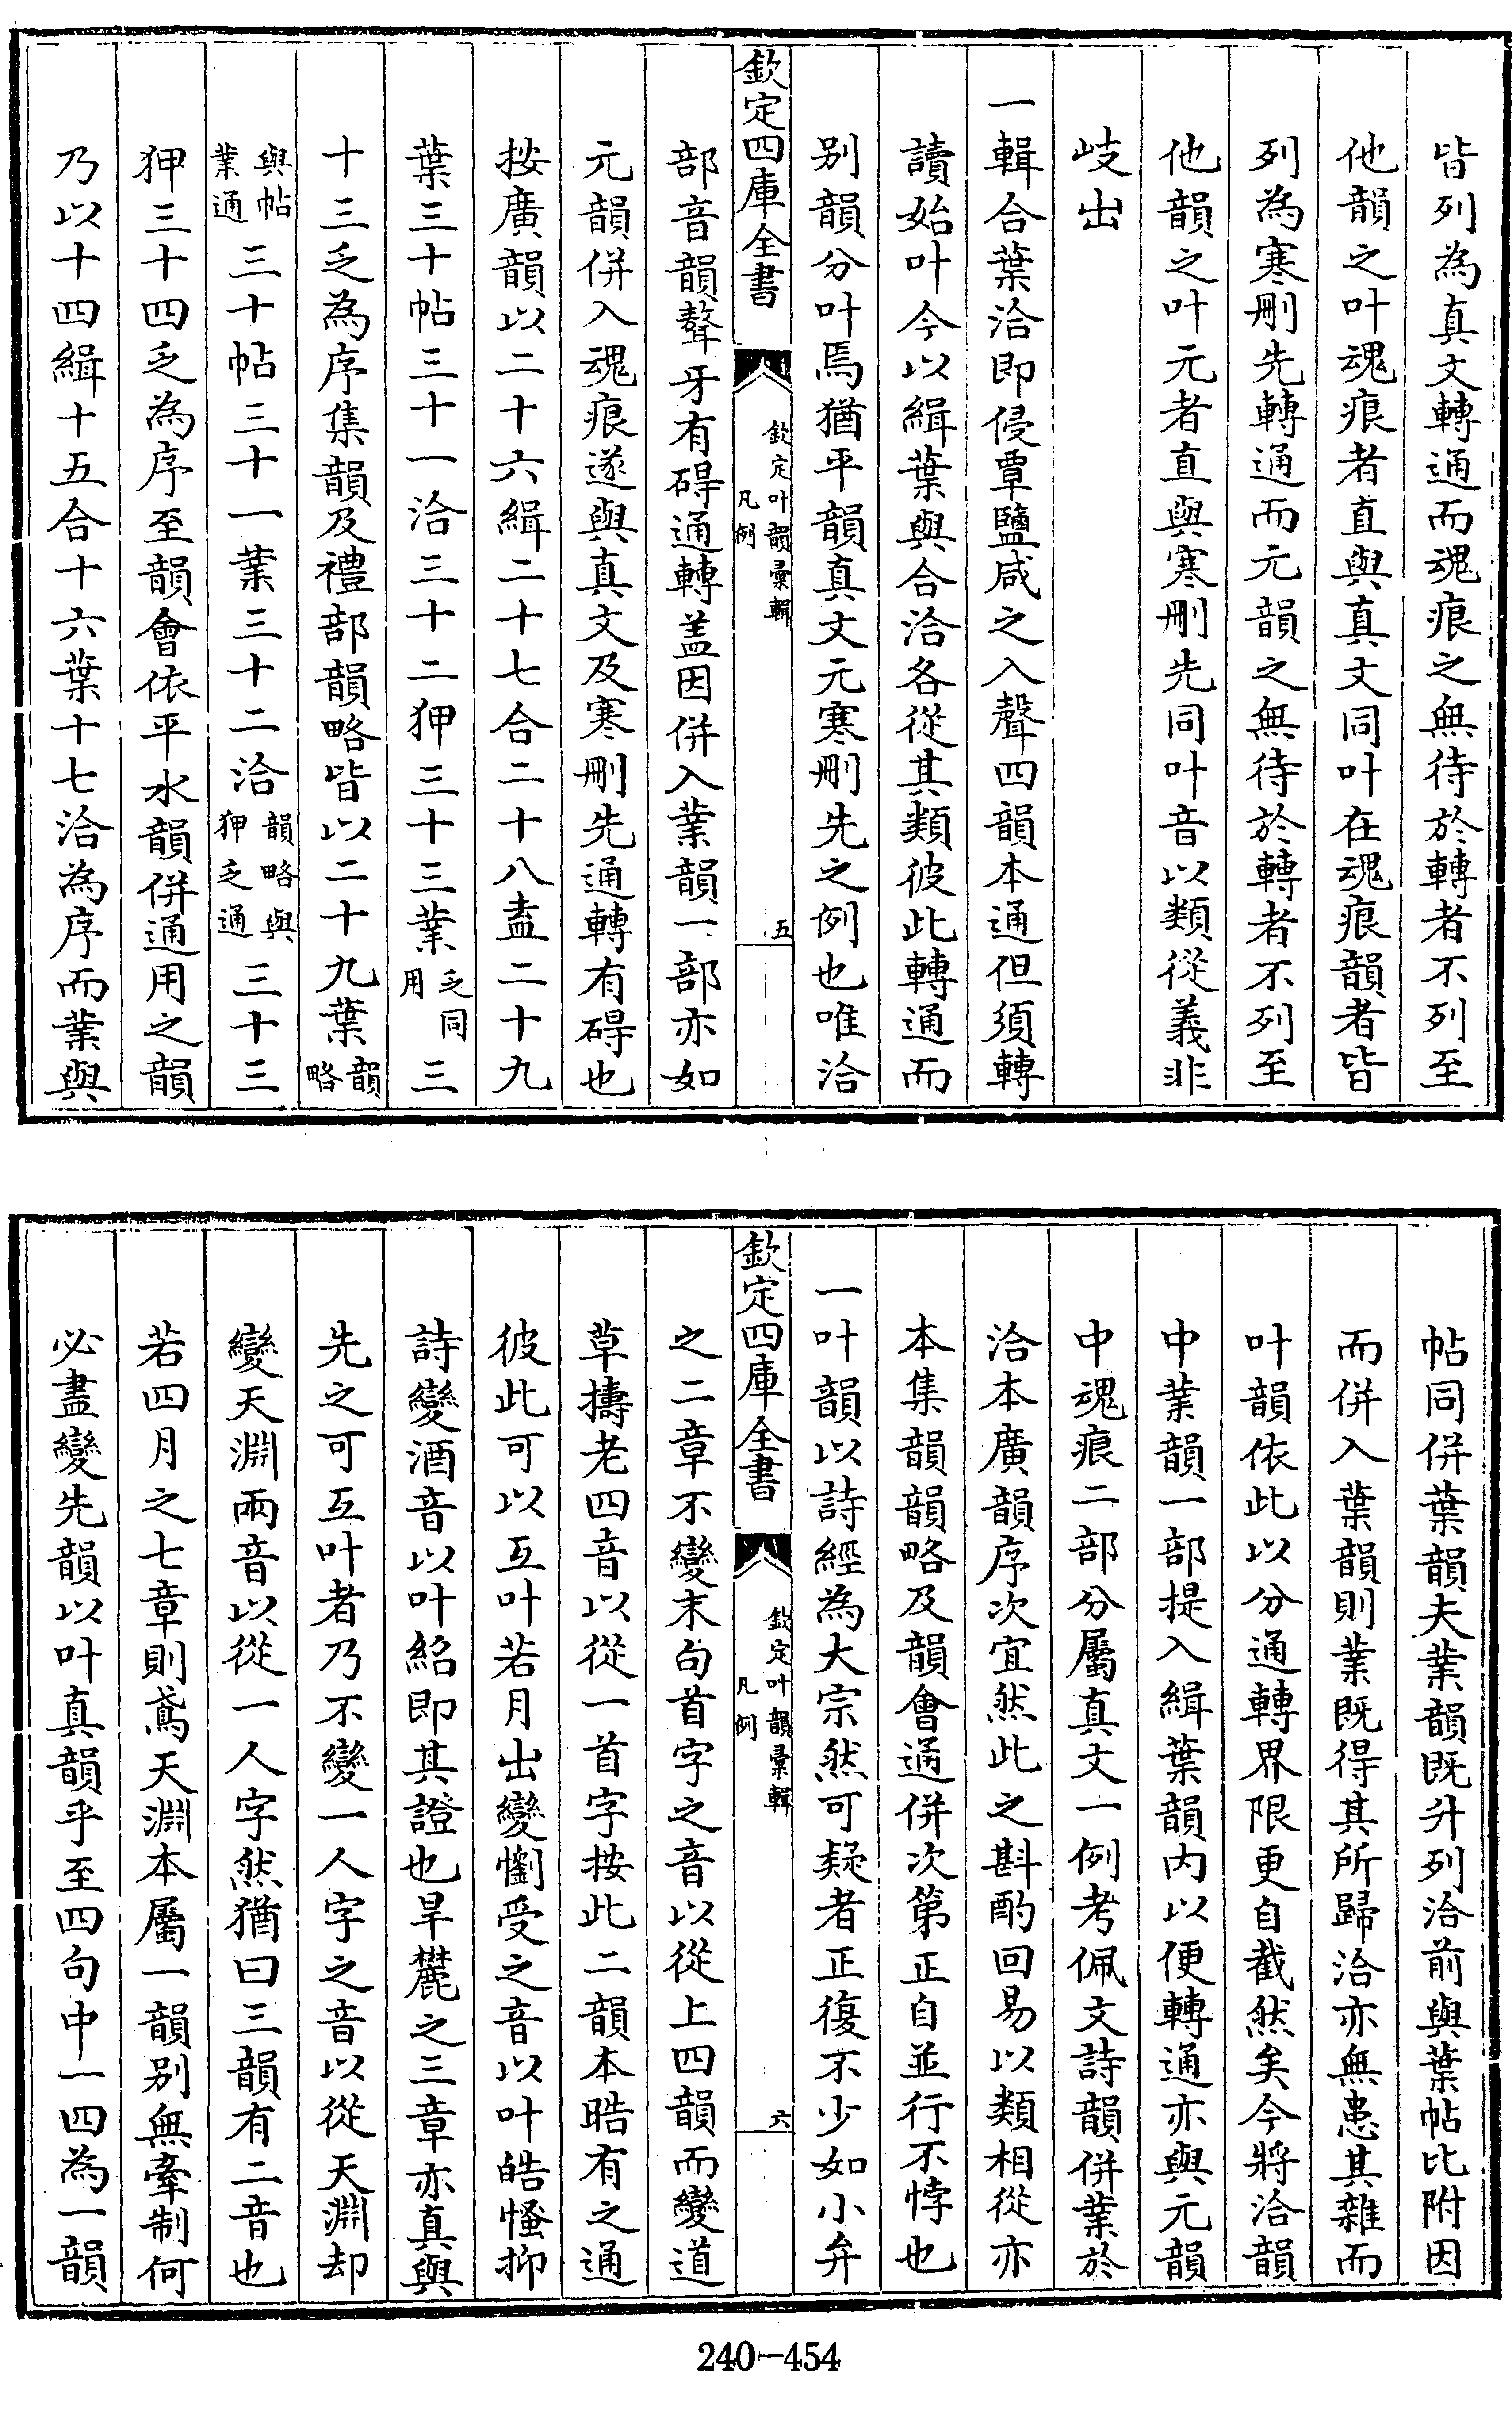 皆列為真文轉通而魂痕之無待於轉者不列至
他韻之叶魂痕者直與真文同叶在魂痕韻者皆
列為寒刪先轉通而元韻之無待於轉者不列至
他韻之叶元者直與寒刪先同叶音以類從義非
歧出
一輯合葉洽即侵覃鹽咸之入聲四韻本通但須轉
讀始叶今以緝葉與合洽各從其類彼此轉通而
別韻分叶焉猶平韻真文元寒刪先之例也唯洽
欽定四庫全書
欽定叶韻彙輯
凡例
五
部音韻聱牙有碍通轉葢因併入業韻一部亦如
元韻併入魂痕遂與真文及寒刪先通轉有碍也
按廣韻以二十六緝二十七合二十八盍二十九
葉三十帖三十一洽三十二狎三十三業乏同用三
十三乏為序集韻及禮部韻略皆以二十九葉韻略
與帖業通三十帖三十一業三十二洽韻略與狎乏通三十三
狎三十四乏為序至韻會依平水韻併通用之韻
乃以十四緝十五合十六葉十七洽為序而業與
帖同併葉韻夫業韻既升列洽前與葉帖比附因
而併入葉韻則業既得其所歸洽亦無患其雜而
叶韻依此以分通轉界限更自截然矣今將洽韻
中業韻一部提入緝葉韻內以便轉通亦與元韻
中魂痕二部分屬真文一例考佩文詩韻併業於
洽本廣韻序次宜然此之斟酌回易以類相從亦
本集韻韻略及韻會通併次第正自並行不悖也
一叶韻以詩經為大宗然可疑者正復不少如小弁
欽定四庫全書
欽定叶韻彙輯
凡例
六
之二章不變末句首字之音以從上四韻而變道
草擣老四音以從一首字按此二韻本晧有之通
彼此可以互叶若月出變懰受之音以叶皓慅抑
詩變酒音以叶紹即其證也旱麓之三章亦真與
先之可互叶者乃不變一人字之音以從天淵却
變天淵兩音以從一人字然猶曰三韻有二音也
若四月之七章則鳶天淵本屬一韻別無牽制何
必盡變先韻以叶真韻乎至四句中一四為一韻
240-454